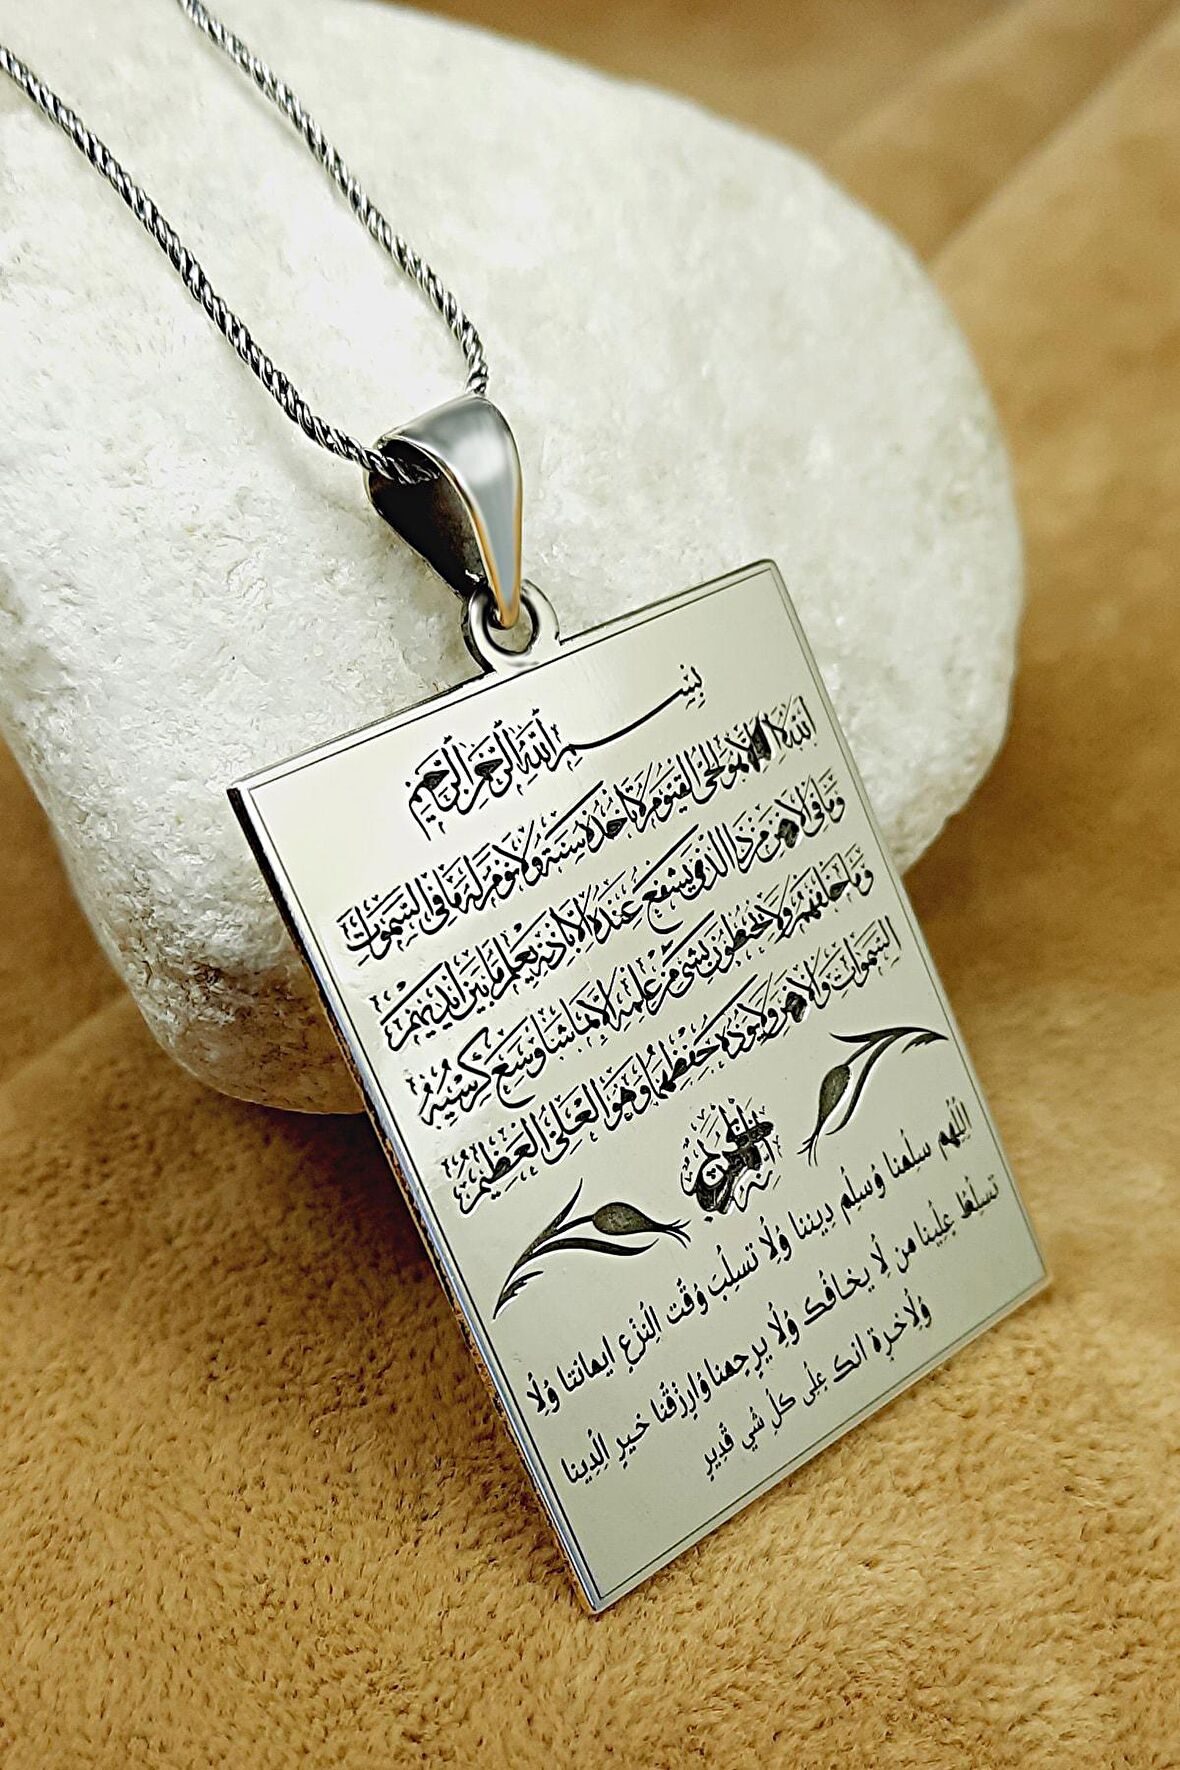 بسم الله الرحمن الرحيم
الله لا اله الا هو الحي القيوم لا تاخذه سنة ولا نوم له ما في السموات
وما في الارض من ذا الذي يشفع عنده الا باذنه يعلم ما بين ايديهم
وما خلفهم ولا يحيطون بشئ من علمه الا بما شا وسع كرسيه
السموات والارض ولا يوده حفظهما وهو العلي العظيم
اللهم سلمنا وسلم ديننا ولا تسلب وقت النزع ايماننا ولا
تسلط علينا من لا يخافك ولا يرحمنا وارزقنا خير الدينا
ولاخرة انك على كل شي قدير